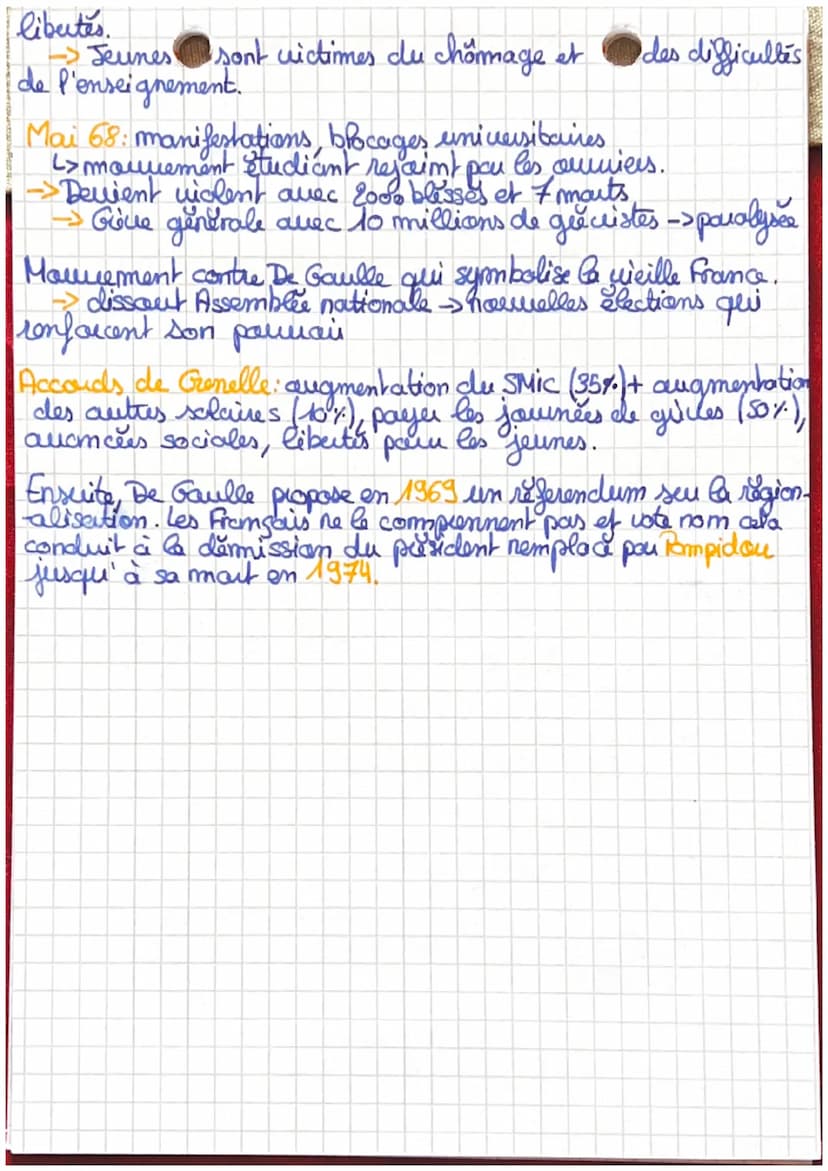 libertés.
-> Jeunes sont victimes du chômage et des difficultés
de l'enseignement.
Mai 68: manifestations, blocages universitaires
↳ mouvement étudiant rejoint par les ouvriers.
-> Devient violent avec 2000 blessés et 7 morts
-> Grève générale avec 10 millions de grévistes -> paralysée
Mouvement contre De Gaulle qui symbolise la vieille France.
-> dissout Assemblée nationale -> nouvelles élections qui
renforcent son pouvoir
Accords de Grenelle: augmentation du SMIC (35%) + augmentation
des autres salaires (10%), payer les journées de grèves (50%),
avancées sociales, libertés pour les jeunes.
Ensuite, De Gaulle propose en 1969 un référendum sur la région-
alisation. Les Français ne le comprennent pas et vote non cela
conduit à la démission du président remplacé par Pompidou
jusqu'à sa mort en 1974.